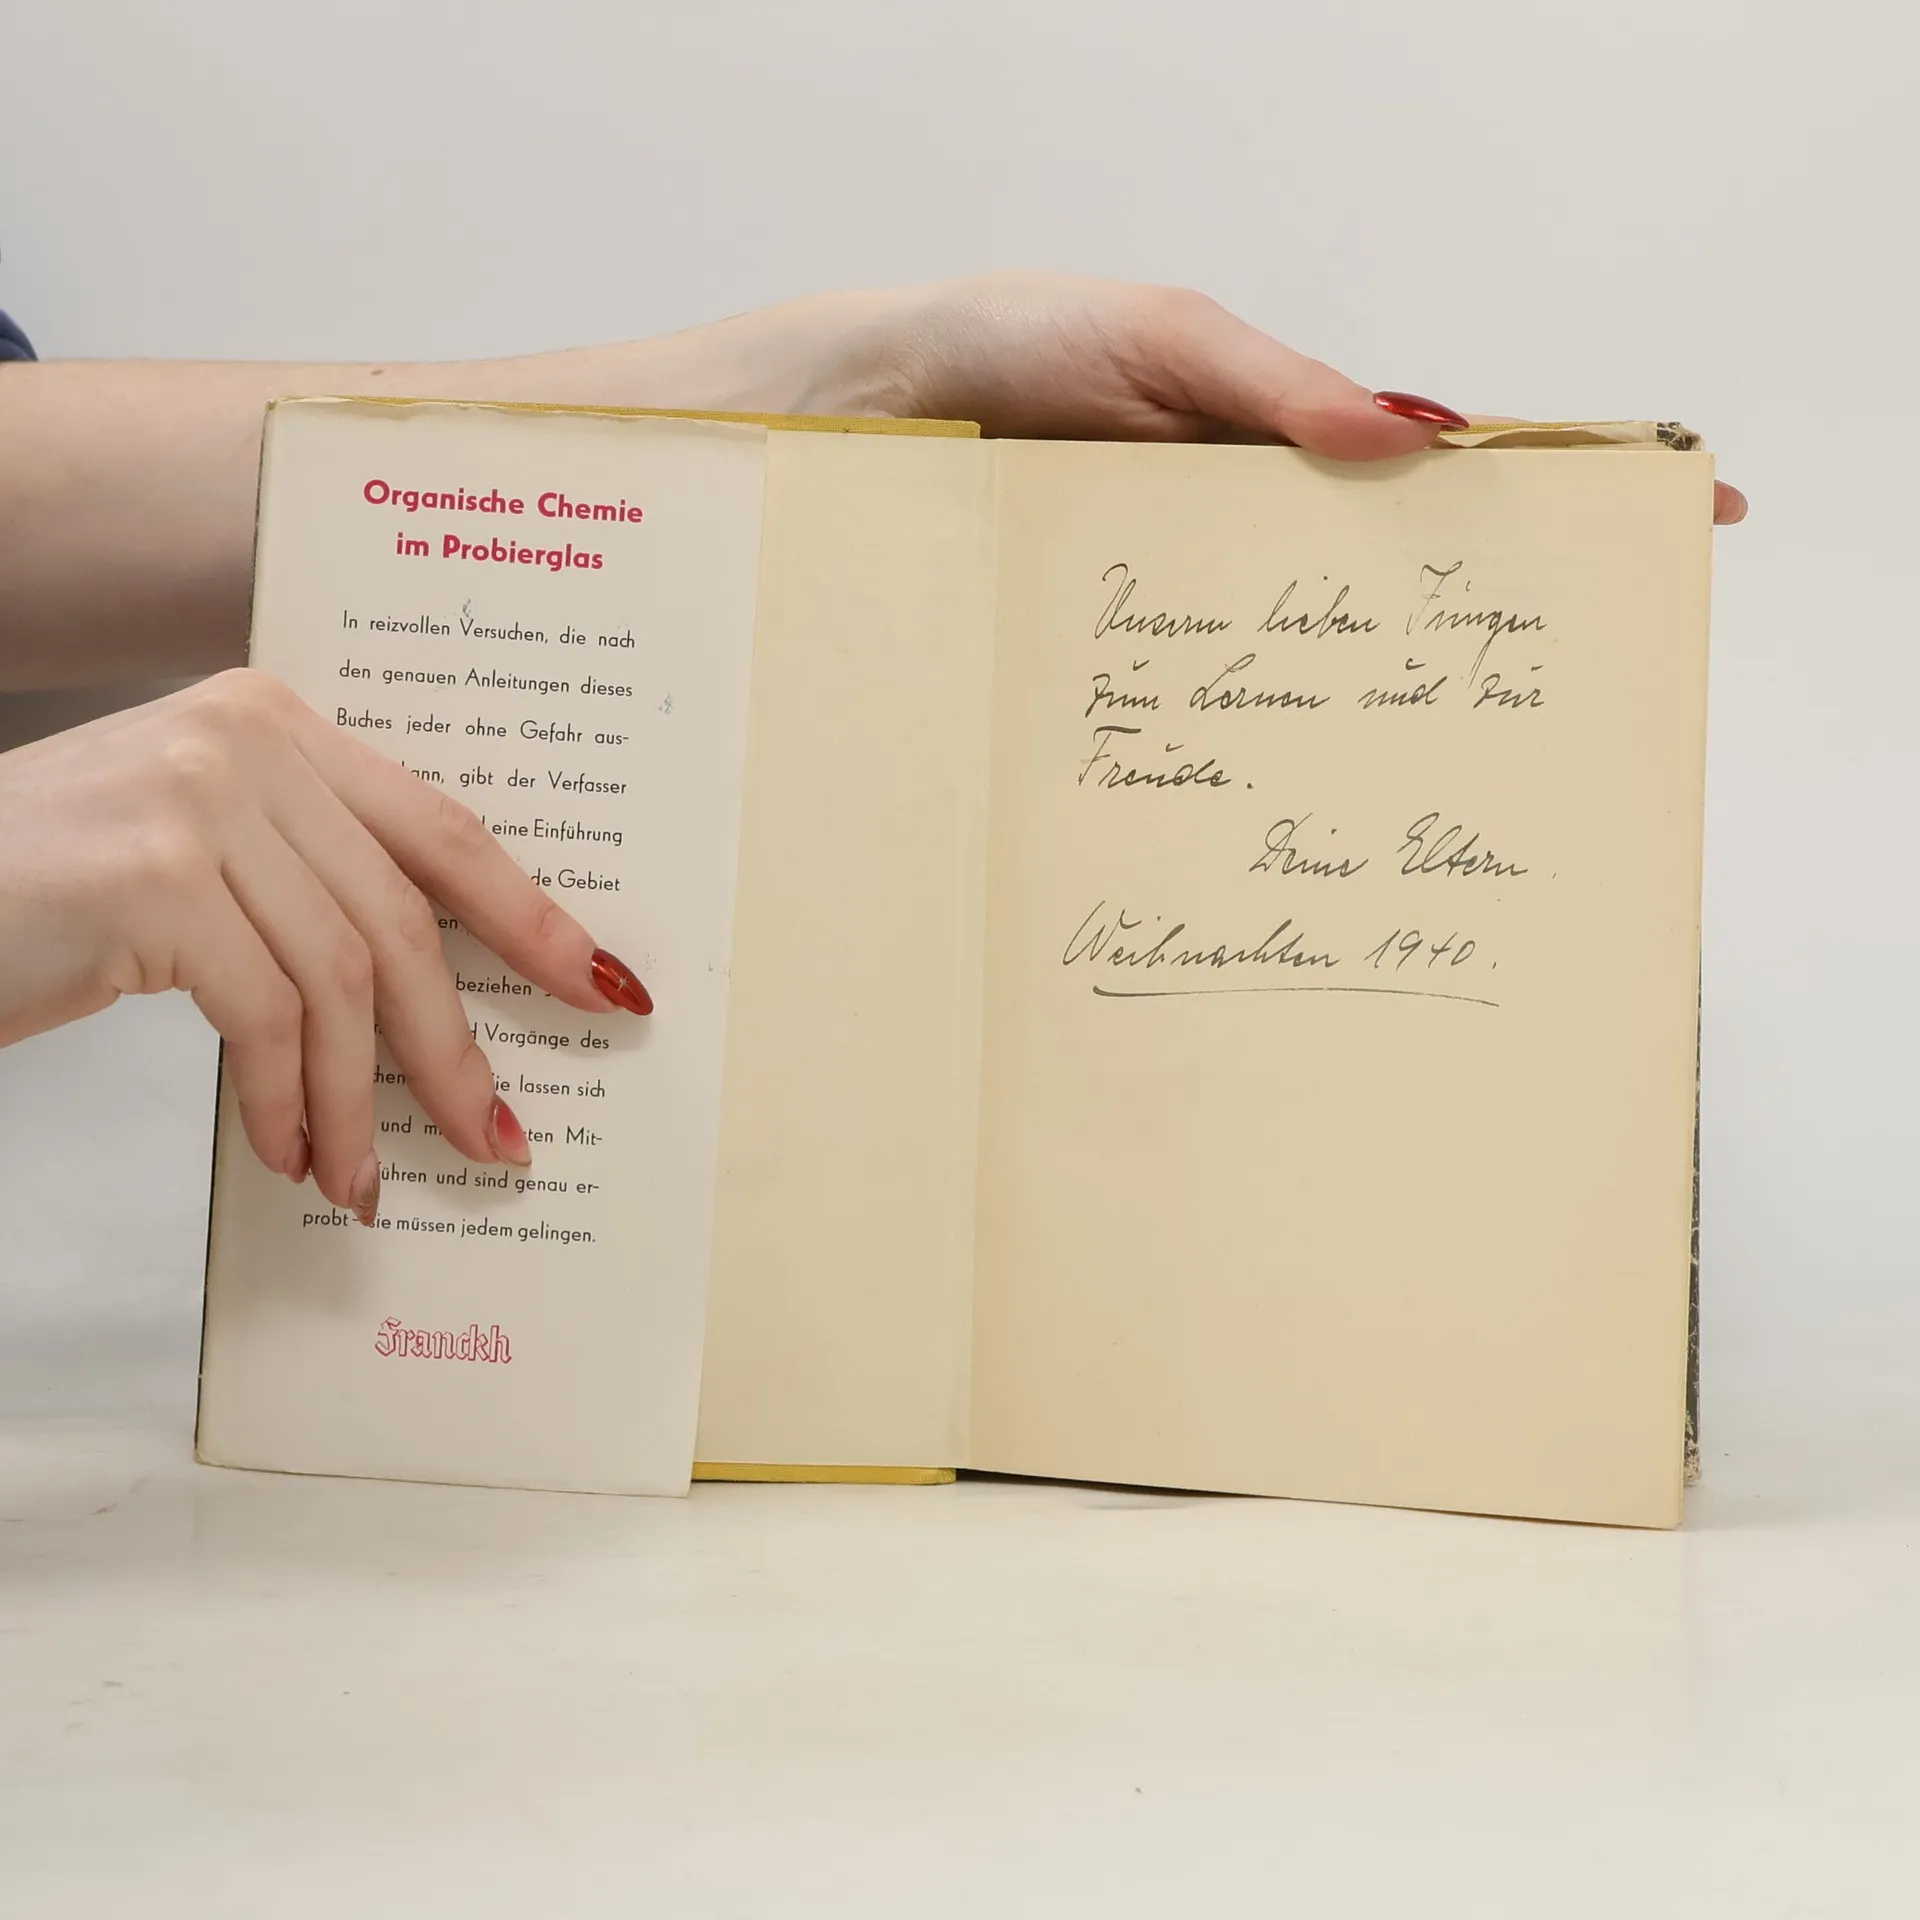 Organische Chemie
im Probierglas
In reizvollen Versuchen, die nach
den genauen Anleitungen dieses
Buches jeder ohne Gefahr aus-
gibt der Verfasser
eine Einführung
Gebiet
beziehen
Vorgänge des
lassen sich
und Mit-
und sind genau er-
probt – sie müssen jedem gelingen.
Franckh
Unserm lieben Jungen
zum Lernen und zur
Freude.
Deine Eltern.
Weihnachten 1940.